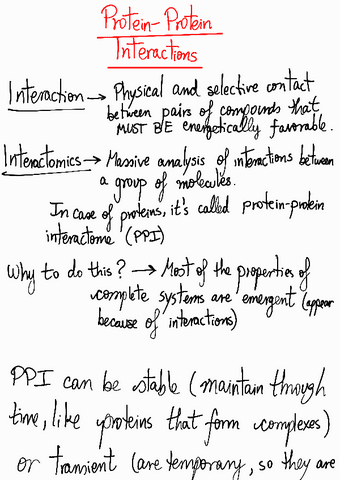 Protein-Protein
Interactions
Interaction → Physical and selective contact
between pairs of compounds that
MUST BE energetically favorable.
Interactomics → Massive analysis of interactions between
a group of molecules.
In case of proteins, it's called protein-protein
interactome (PPI)
Why to do this? → Most of the properties of
complete systems are emergent (appear
because of interactions)
PPI can be stable (maintain through
time, like proteins that form complexes)
or transient (are temporary, so they are